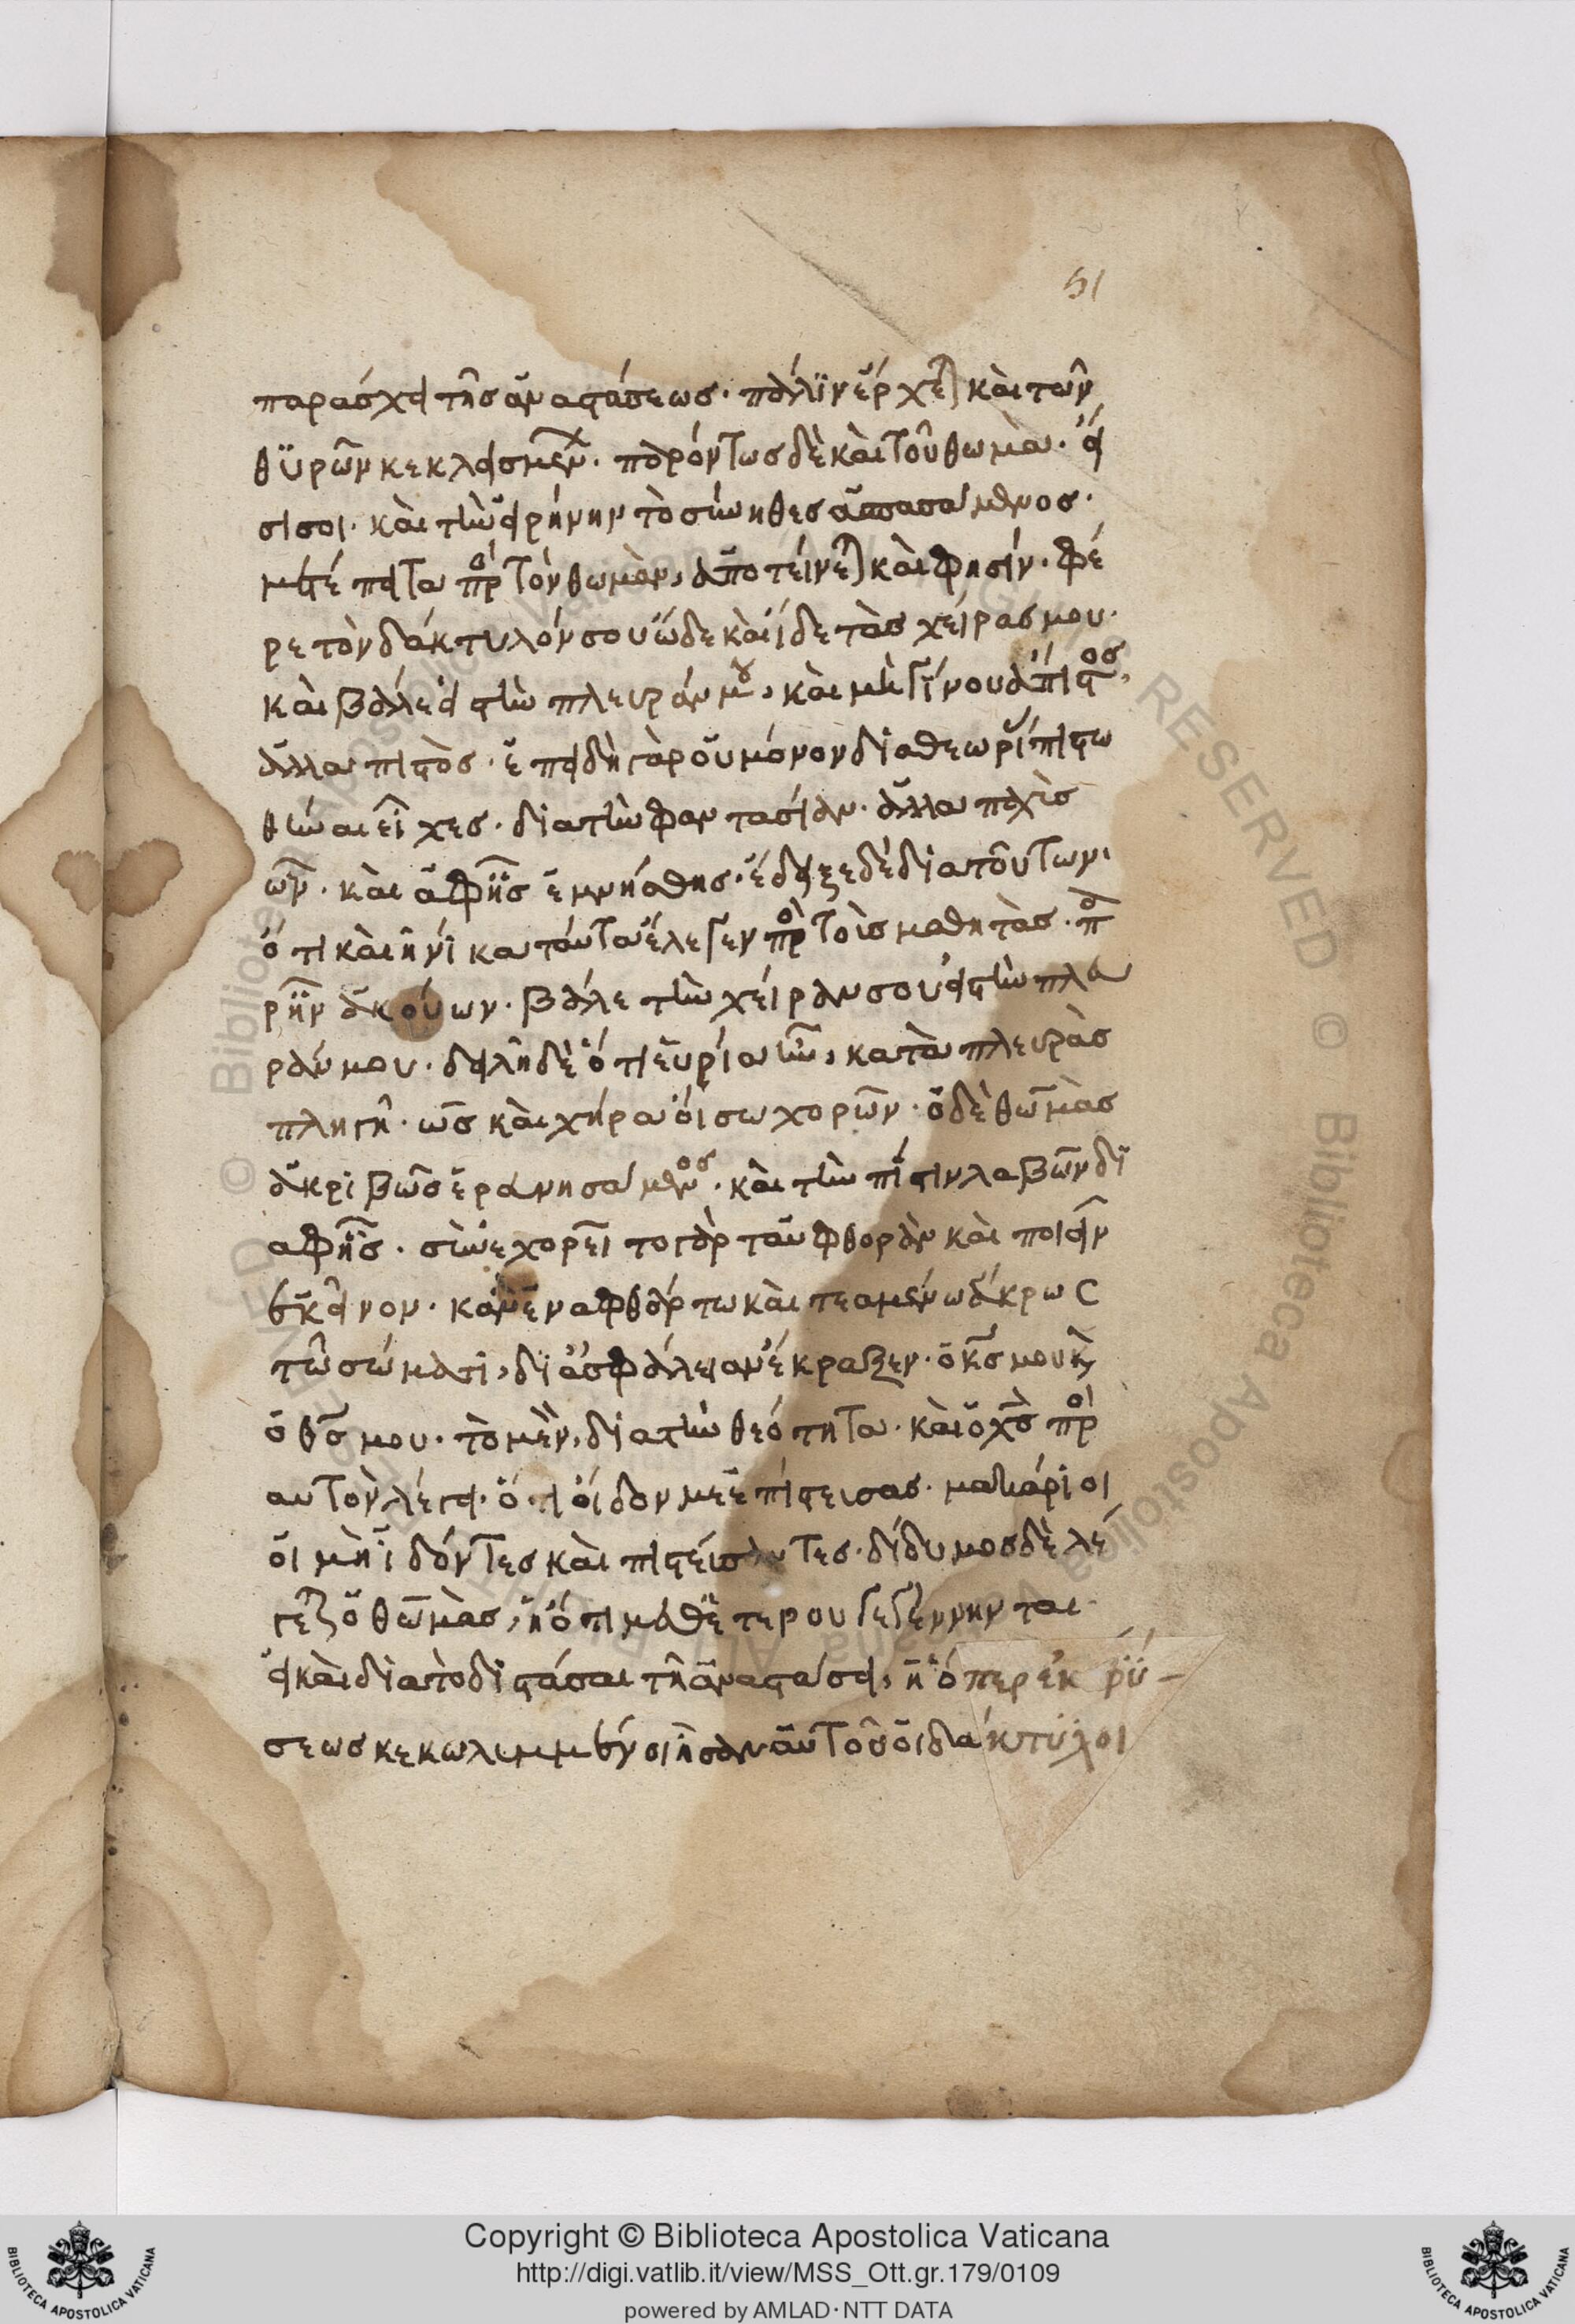 51
παράσχει τῆς ἀναστάσεως· πάλϊν ἔρχετ(αι) καὶ τῶν
θϋρῶν κεκλεισμεν· παρόντως δὲ καὶ τοῦ θωμὰ· εἴ
σισοι· καὶ τὴν εἰρήνην τὸ σύνηθες ἀσπασάμενος·
μετέπειτα πρ τὸν θωμὰν, ἀποτείνετ(αι) καὶ φησίν· φέ
ρε τὸν δάκτυλόν σου ὧδε καὶ ἴδε τὰς χείρας μου·
καὶ βάλε εἰ στὴν πλευράν μου, καὶ μὴ γίνου ἄπιστος,
ἀλλα πιστὸς· ἐπειδὴ γὰρ οὐ μόνον δία θεωρΐ πιστω
θήναι εἶχες· δία τὴν φαντασίαν· ἀλλα
ων· καὶ ἀφῆς ἐμνήσθης· ἔδειξε δὲ δία τούτων·
ὅτι καὶ ἡνίκα ταύτα ἔλεγεν πρ τοὶς μαθητὰς· π
ρῆν ἀκούων· βάλε τὴν χείραν σου εἰ στὴν πλευ
ράν μου· δειλῆ δὲ ὅτι εὐρία ἦν, κατὰ πλευρὰς
πληγὴ· ὡς καὶ χήρα οἴσω χορῶν· ὁ δὲ θωμὰς
ἀκρϊβῶς ἐραυνησάμενος· καὶ τὴν πίστιν λαβῶν δϊ
αφῆς· σὴνεχορεῖ το γὰρ ταῦ φθορὰν καὶ ποιεῖν
ἐκεῖνον· κἀν ἐν αφθάρτω καὶ
τῶ σώματι, δϊ ἀσφάλειαν ἔκραξεν· ὁ κς μου κ
ὁ θς μου· τὸ μὲν, δία τὴν θεότητα· καὶ ὁ χς πρ
αυτὸν λέγει· ὅτι οἴδον με ἐπίστεισας· μακάριοι
οἱ μὴ ϊδόντες καὶ πιστείσαντες· δίδυμος δὲ λέ
γετ(αι) ὁ θωμὰς, ἢ ὅτι μεθ ετέρου γεγέννηνται·
εἰ καὶ δία τὸ δϊστάσαι τὴ ἀναστάσει, ἢ ὅπερ ἐκ φύ-
σεως κεκωλειμμένοι ἦσαν αὐτοῦ οἱ δάκτυλοι
Copyright © Biblioteca Apostolica Vaticana
http://digi.vatlib.it/view/MSS_Ott.gr.179/0109
powered by AMLAD·NTT DATA
BIBLIOTECA APOSTOLICA VATICANA
BIBLIOTECA APOSTOLICA VATICANA